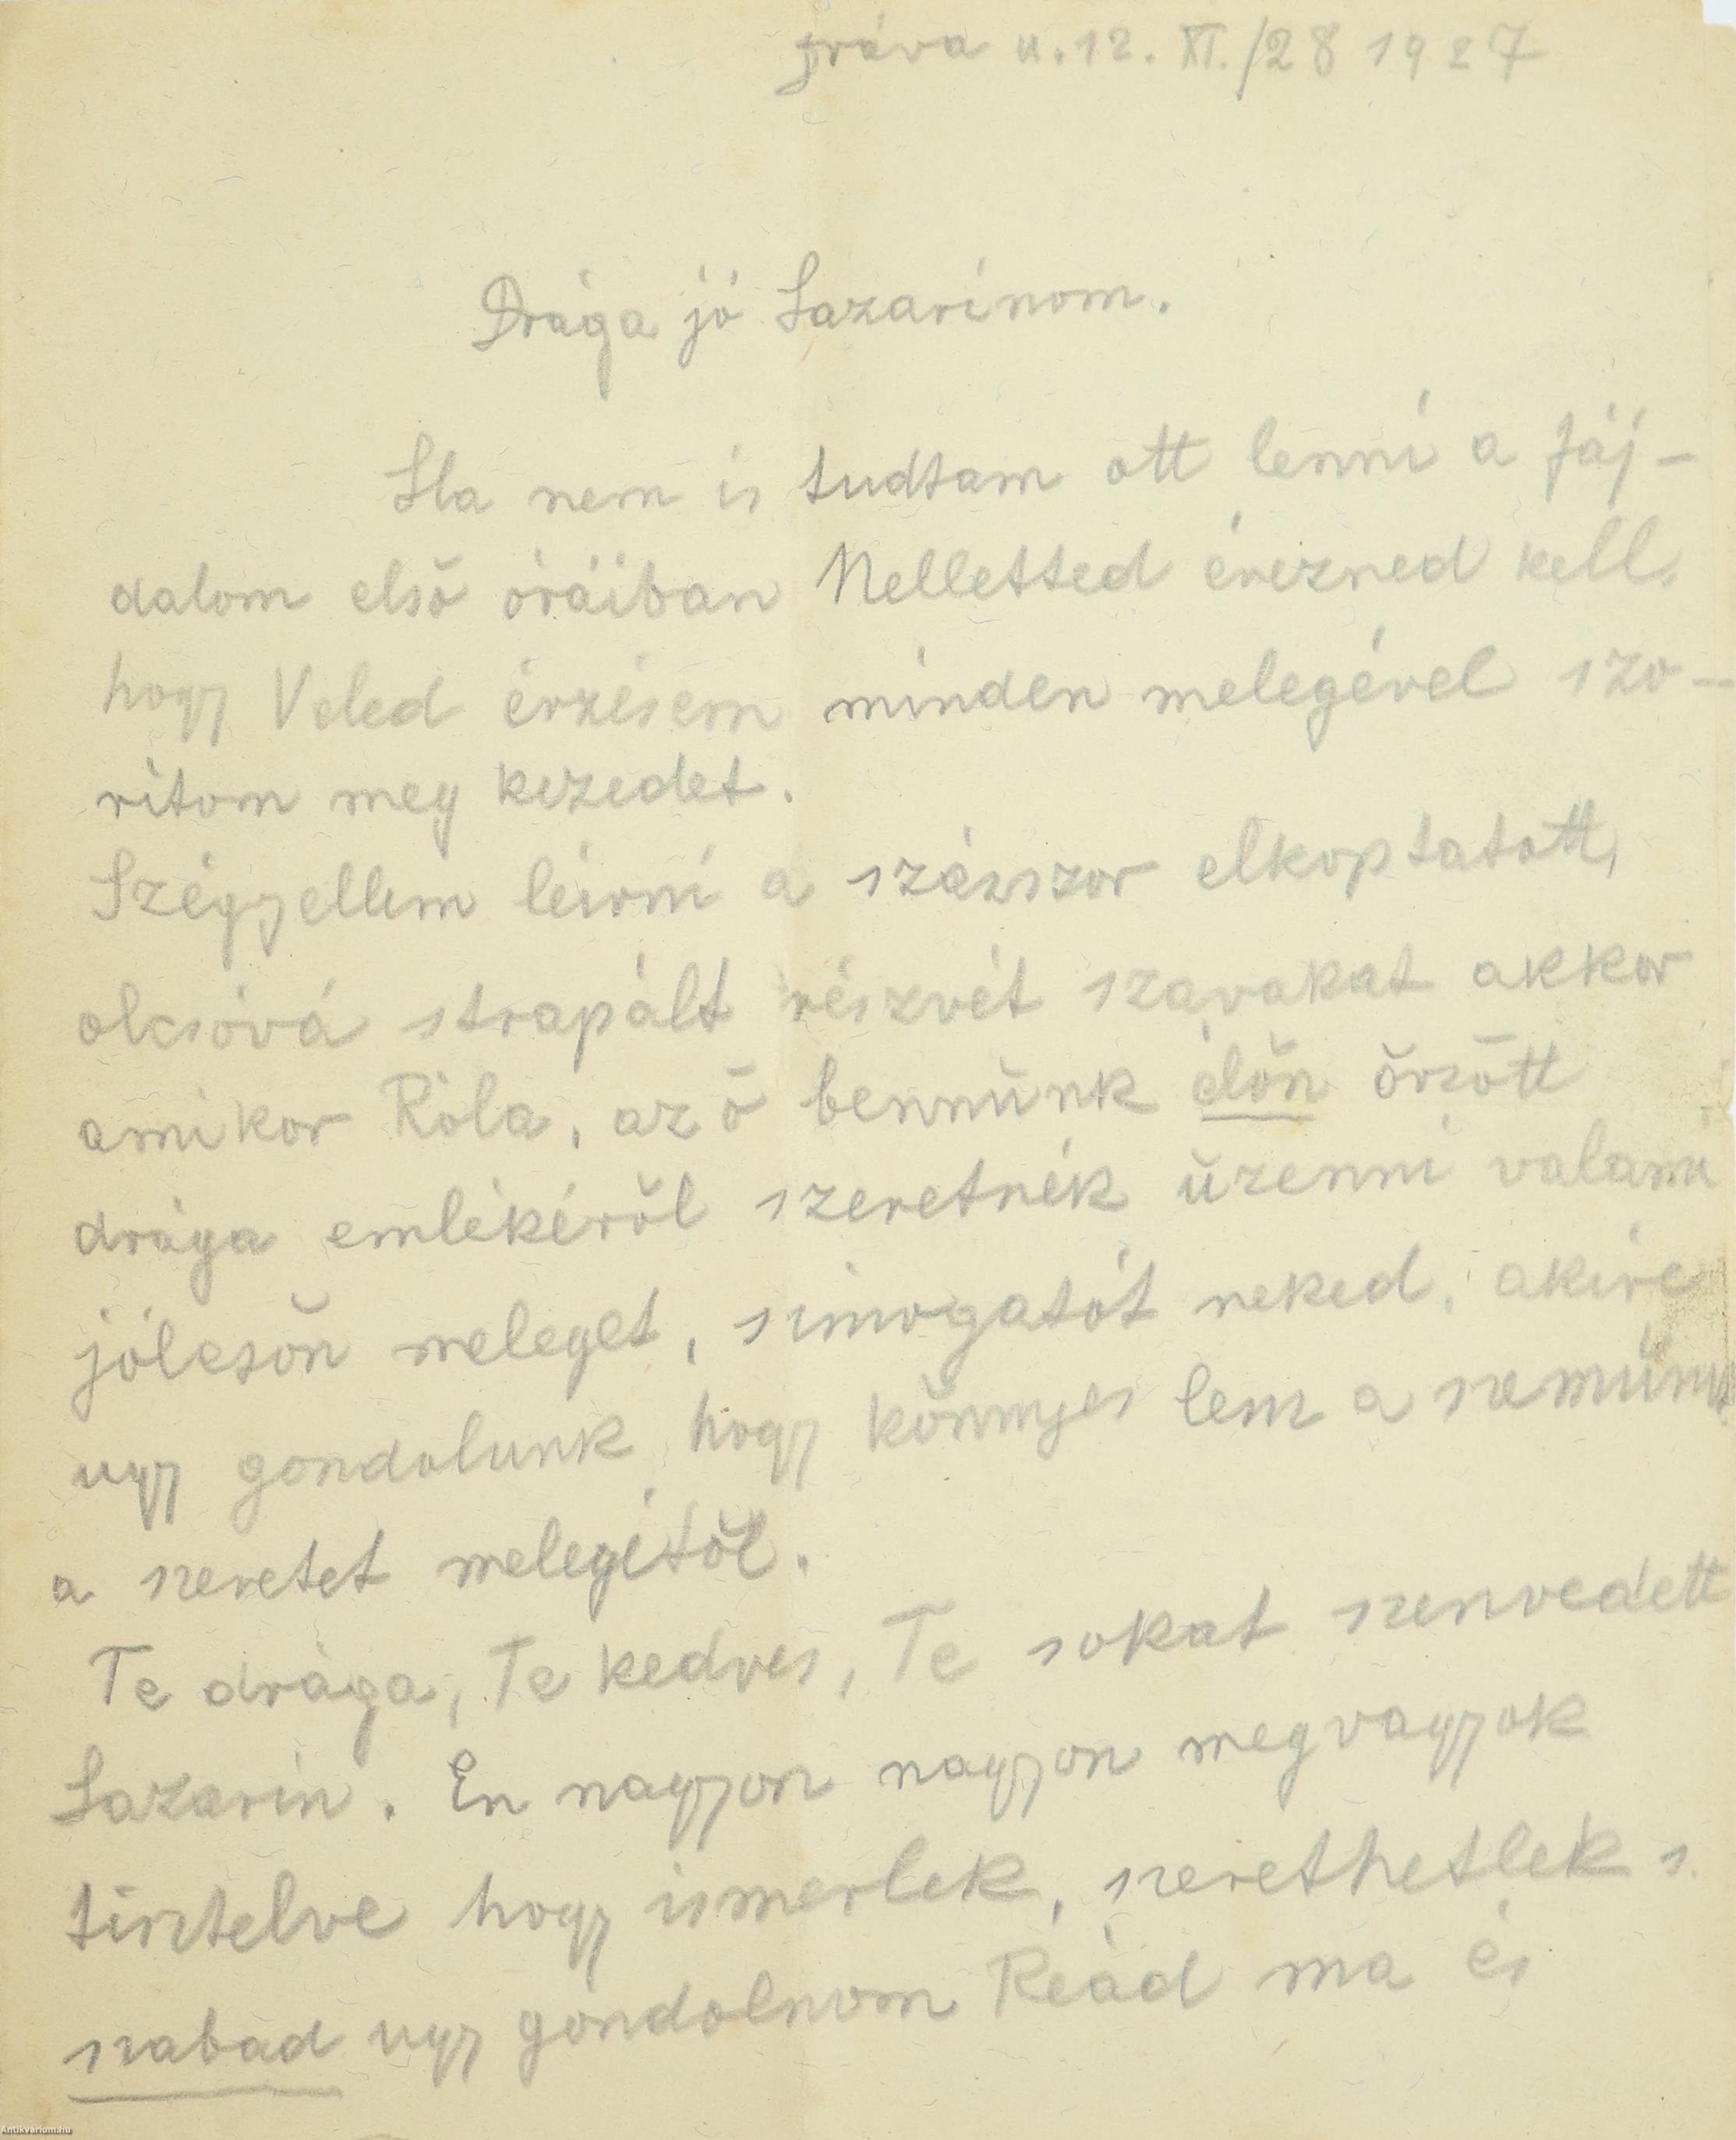 Práva u. 12. XI./28 1927
Drága jó Lazarinom.
Ha nem is tudtam ott lenni a fáj-
dalom első óráiban Melletted érezned kell.
hogy Veled érzésem minden melegével szo-
ritom meg kezedet.
Szégyellem leirni a százszor elkoptatott,
olcsóvá strapált részvét szavakat akkor
amikor Róla, az ő bennünk élőn őrzött
drága emlékéről szeretnék üzenni valami
jólesőn meleget, simogatót neked, akire
ugy gondolunk hogy könnyes lesz a szemünk
a szeretet melegétől.
Te drága, Te kedves, Te sokat szenvedett
Lazarin. Én nagyon nagyon megvagyok
tisztelve hogy ismerlek, szerethetlek s.
szabad ugy gondolnom Reád ma és
Antikvarium.hu